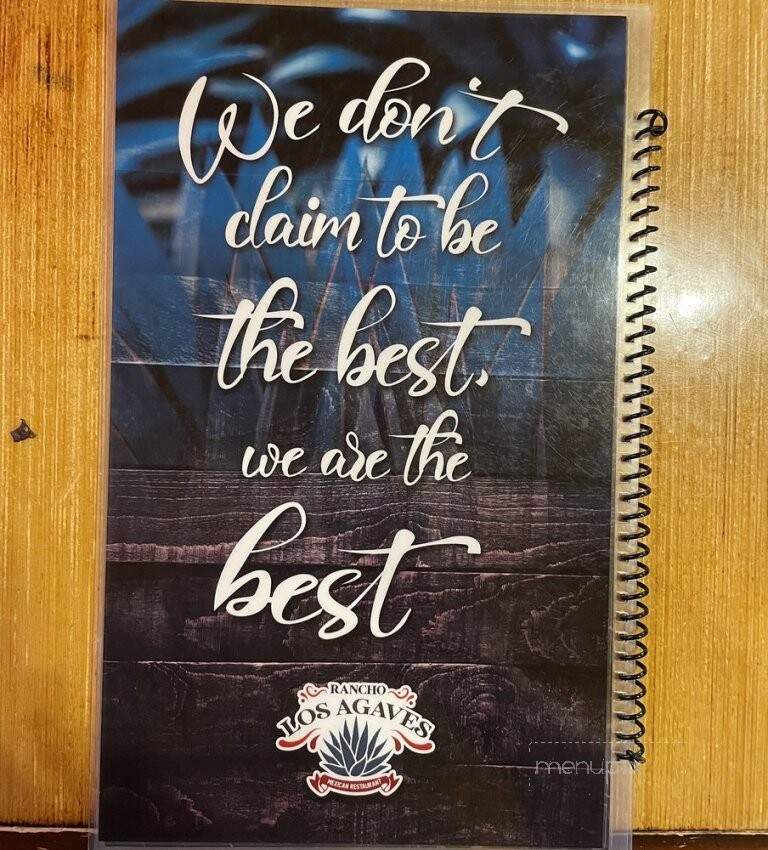 We don't
claim to be
the best,
we are the
best
RANCHO
LOS AGAVES
MEXICAN RESTAURANT